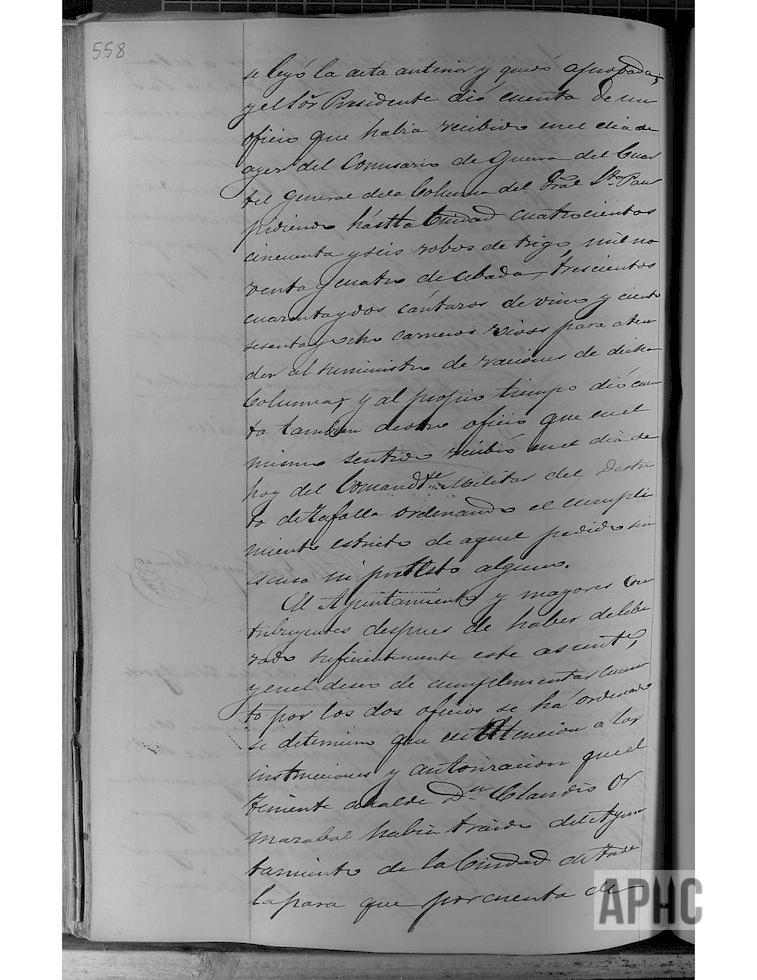 558
se leyó la acta anterior y quedó aprobada,
y el Sor Presidente dió cuenta de un
oficio que habia recibido en el dia de
ayer del Comisario de Guerra del Cuar
tel General de la Columna del Gral
pidiendo há esta Ciudad cuatrocientos
cincuenta y seis robos de trigo, mil no
venta y cuatro de cebada, trescientos
cuarenta y dos cántaros de vino y ciento
sesenta y ocho carneros vivos para aten
der al suministro de raciones de dicha
Columna, y al propio tiempo dió cuen
ta tambien de otro oficio que en el
mismo sentido recibió en el dia de
hoy del Comandte Militar del Distri
to de Tafalla ordinando el cumpli
miento estricto de aquel pedido sin
escusa ni pretesto alguno.
El Ayuntamiento y mayores con
tribuyentes despues de haber delibe
rado suficientemente este asunto,
y en el deseo de cumplimentar cuan
to por los dos oficios se há ordenado
se determino que en atencion a las
instrucciones y autorizacion que el
teniente alcalde Dn Claudio Or
marabal habia traido del Ayun
tamiento de la Ciudad de Tude
la para que por cuenta de
APHC